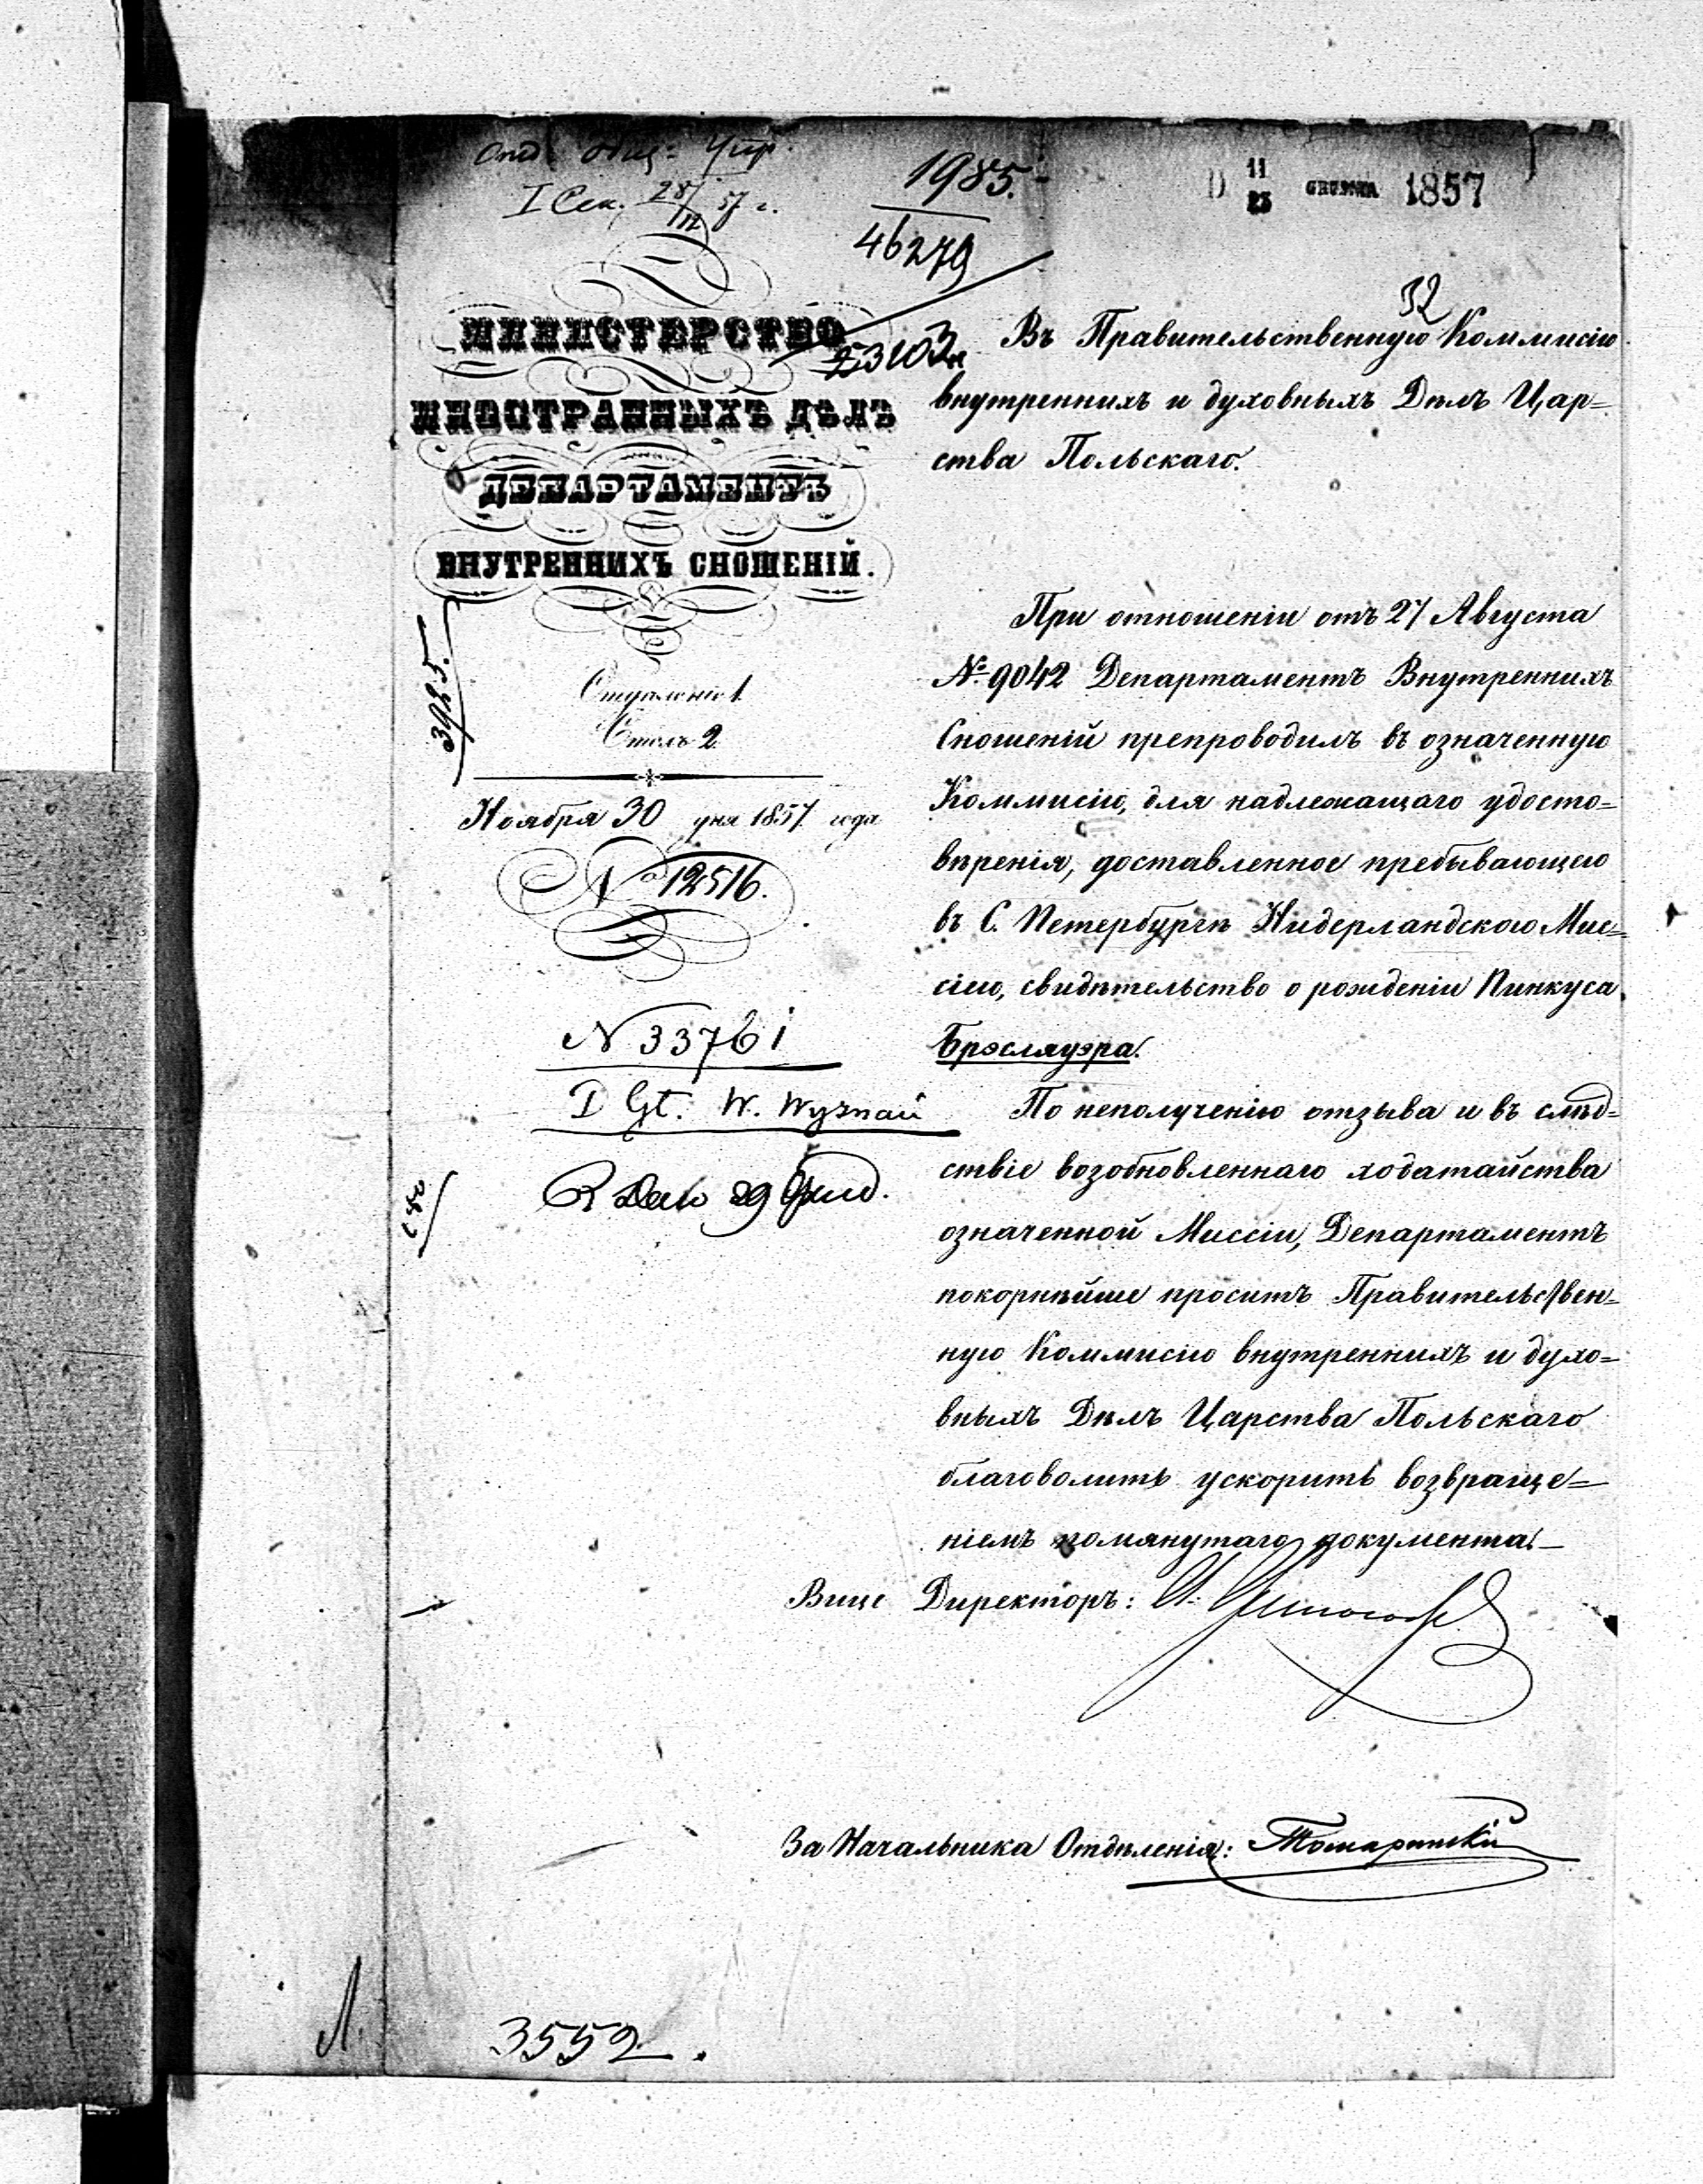 Отд. общ: Упр.
I Сек. 28/12 57 г.
1985.
46279
D 11/23 GRUDNIA 1857
32
МИНИСТЕРСТВО
ИНОСТРАННЫХЪ ДѢЛЪ
ДЕПАРТАМЕНТЪ
ВНУТРЕННИХЪ СНОШЕНІЙ.
3925.
Отдѣленіе 1.
Столъ 2.
Ноября 30 дня 1857 года
№ 12516.
N 33761
W. Wyznań
Въ Правительственную Коммисію
внутреннихъ и духовныхъ Дѣлъ Цар=
ства Польскаго.
При отношеніи отъ 27 Августа
№ 9042 Департаментъ Внутреннихъ
Сношеній препроводилъ въ означенную
Коммисію, для надлежащаго удосто=
вѣренія, доставленное пребывающею
въ С. Петербургѣ Нидерландскою Мис=
сіею, свидѣтельство о рожденіи Пинкуса
Брэслауэра.
По неполученію отзыва и въ слѣд=
ствіе возобновленнаго ходатайства
означенной Миссіи, Департаментъ
покорнѣйше проситъ Правительствен=
ную Коммисію внутреннихъ и духо=
вныхъ Дѣлъ Царства Польскаго
благоволить ускорить возвраще=
ніемъ помянутаго документа.—
Вице Директоръ:
За Начальника Отдѣленія:
3552.